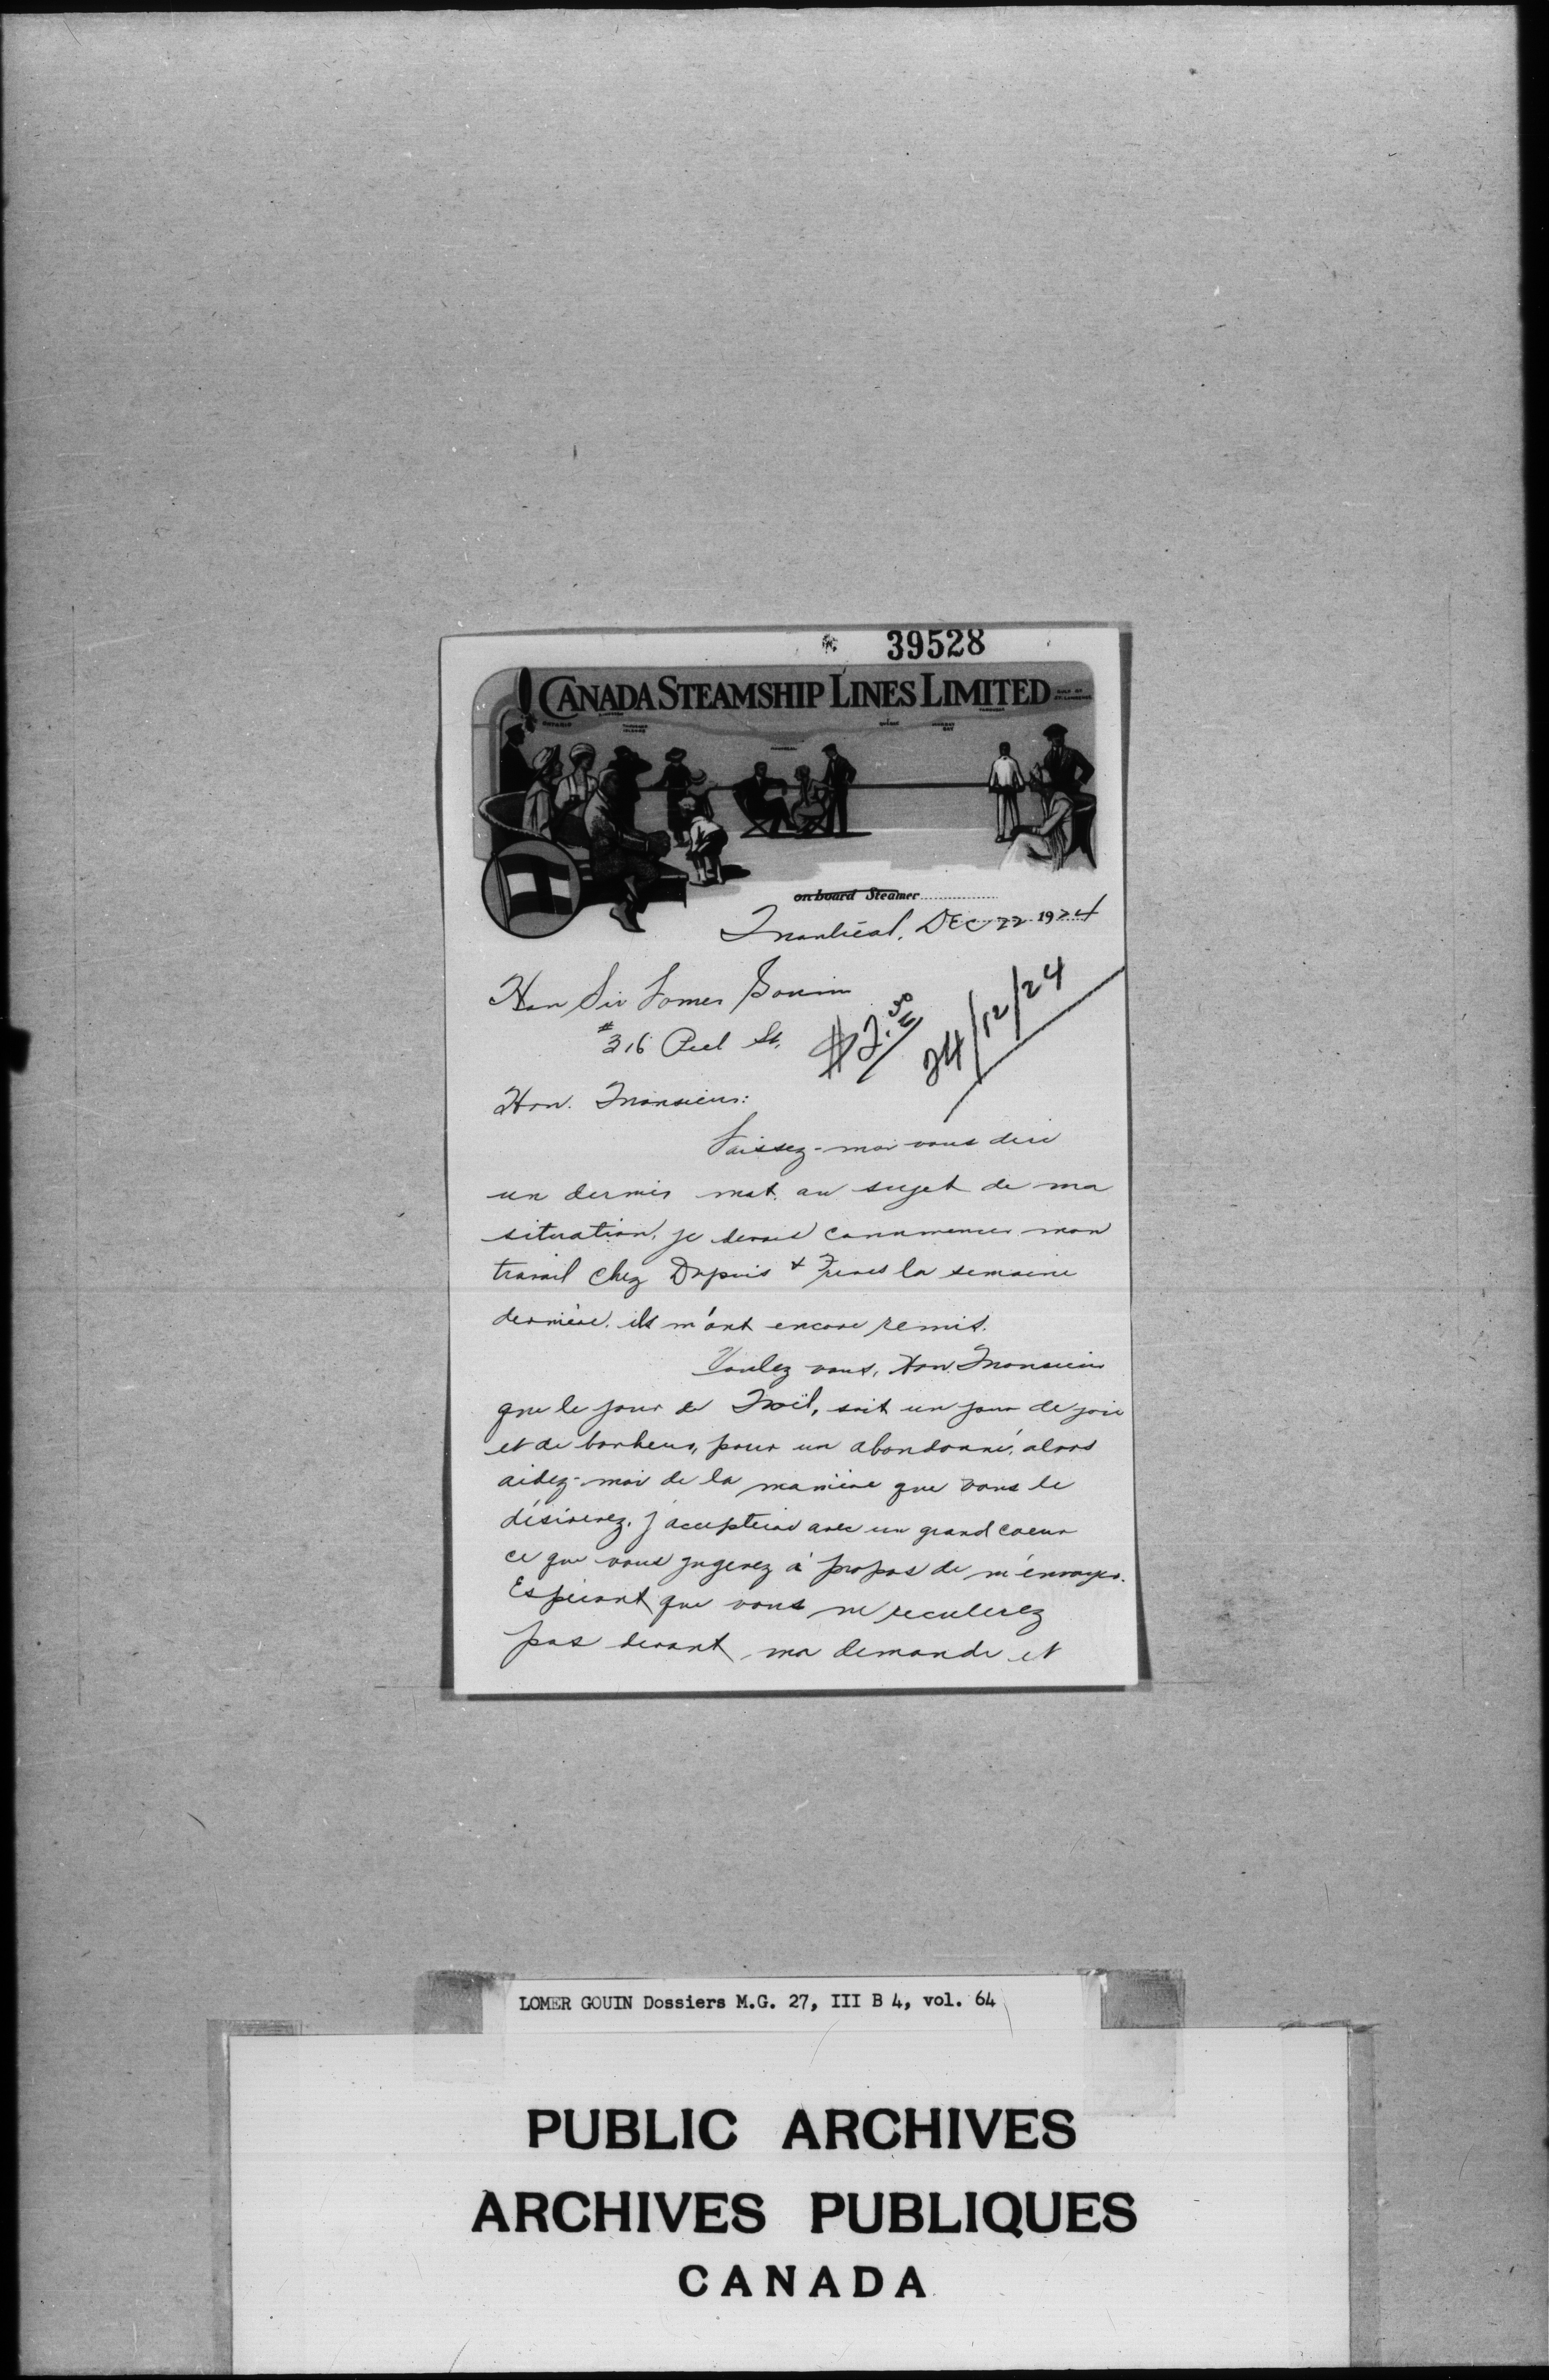 39528
CANADA STEAMSHIP LINES LIMITED
GULF OF ST. LAWRENCE
on board Steamer
Montréal, DEC 22 1924
Hon Sir Lomer Gouin
#316 Peel St.
$2.50
24/12/24
Hon. Monsieur:
Laissez-moi vous dire
un dernier mot. au sujet de ma
situation, je devais commencer mon
travail chez Dupuis & Freres la semaine
dernière. ils m'ont encore remis.
Voulez vous, Hon. Monsieur
que le jour de Noël, soit un jour de joie
et de bonheur, pour un abandonné, alors
aidez-moi de la manière que vous le
désirerez. j'accepterai avec un grand coeur
ce que vous jugerez à propos de m'envoyer.
Espérant que vous ne reculerez
pas devant ma demande et
LOMER GOUIN Dossiers M.G. 27, III B 4, vol. 64
PUBLIC ARCHIVES
ARCHIVES PUBLIQUES
CANADA